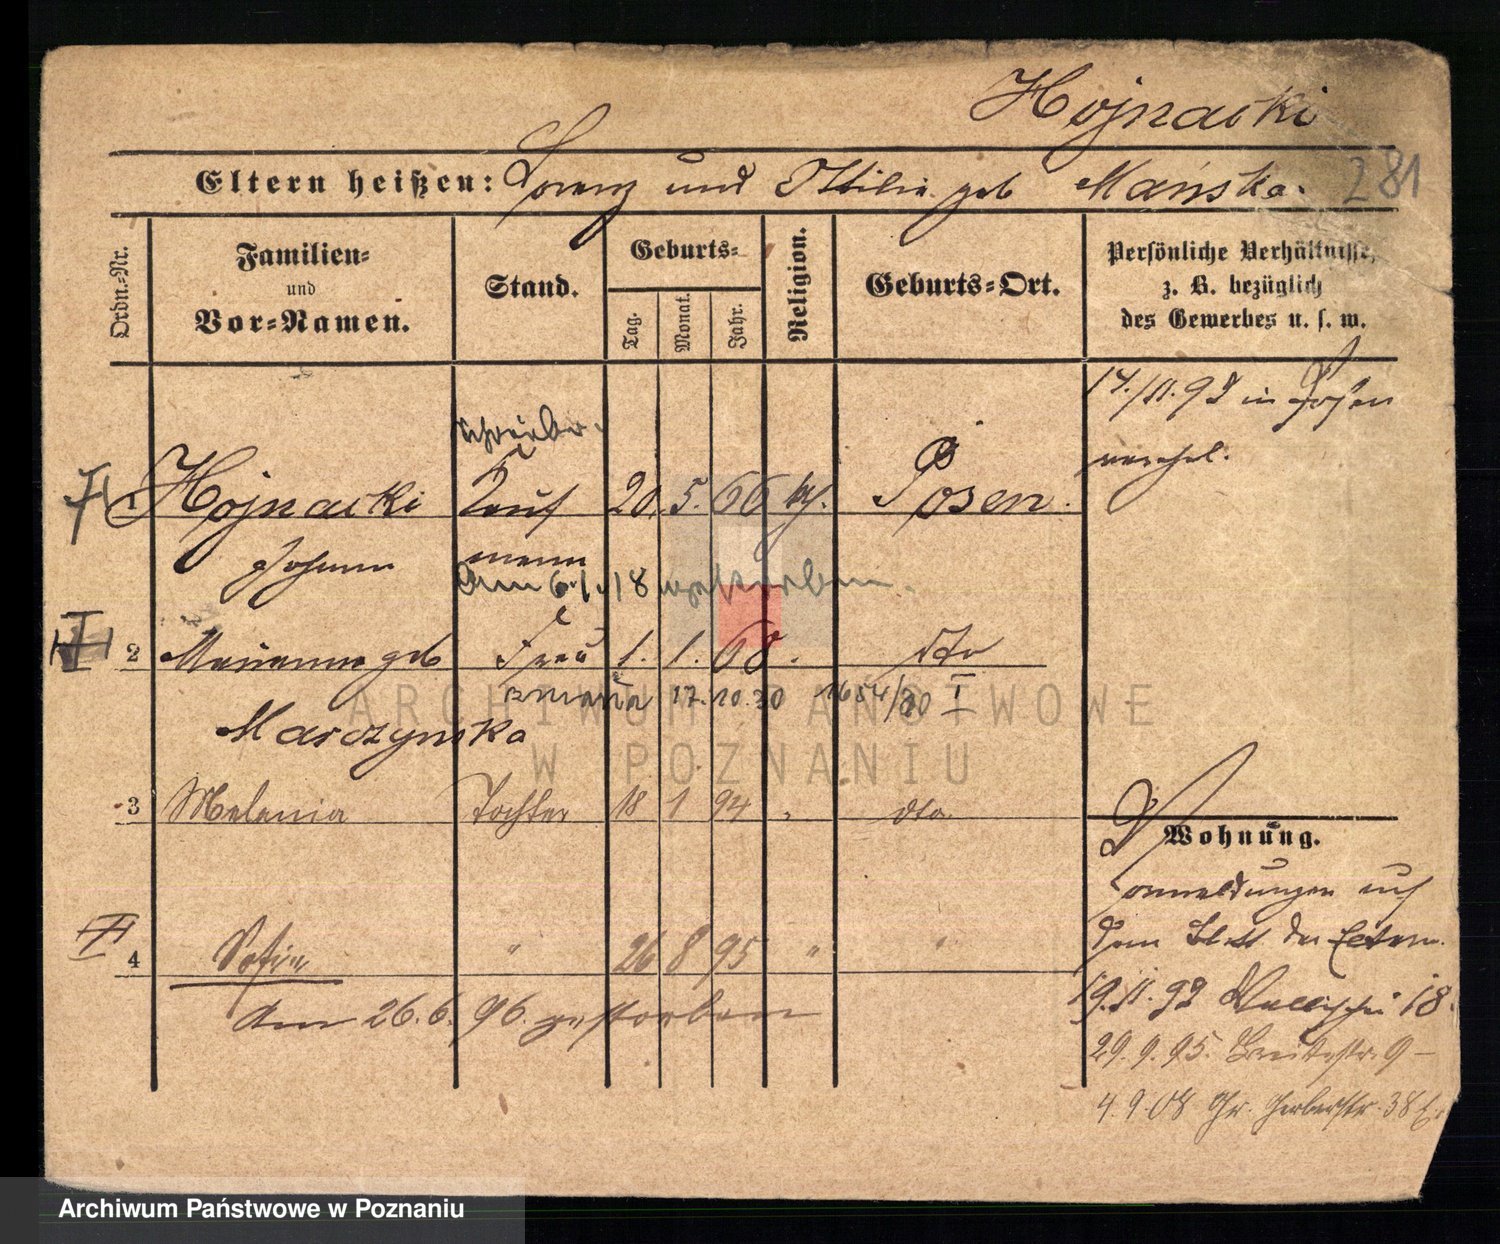 Hojnacki
Eltern heißen: Lorenz und Ottilie geb Mańska.
281
Ordn.-Nr.
Familien- und Vor-Namen.
Stand.
Geburts-
Tag. Monat. Jahr.
Religion.
Geburts-Ort.
Persönliche Verhältnisse,
z. B. bezüglich
des Gewerbes u. s. w.
14./11. 92 in Posen
verehel.
schreiber.
1 Hojnacki Kauf 20. 5. 66 kt. Posen.
Johann mann
Am 6.1.18 gestorben.
2 Marianna geb Frau 1. 1. 68. dto
17.10.20 1654/20 I
Marczynska
3 Melania Tochter 18 1 94 " dto.
4 Sofie " 26 8 95 " "
Am 26.6. 96. gestorben
Wohnung.
Vormeldungen auf
dem Blatt der Eltern.
19.11.92 Wallischei 18.
29.9.95. Breitestr. 9 –
4.9.08 Gr. Gerberstr. 38
ARCHIWUM PAŃSTWOWE
W POZNANIU
Archiwum Państwowe w Poznaniu